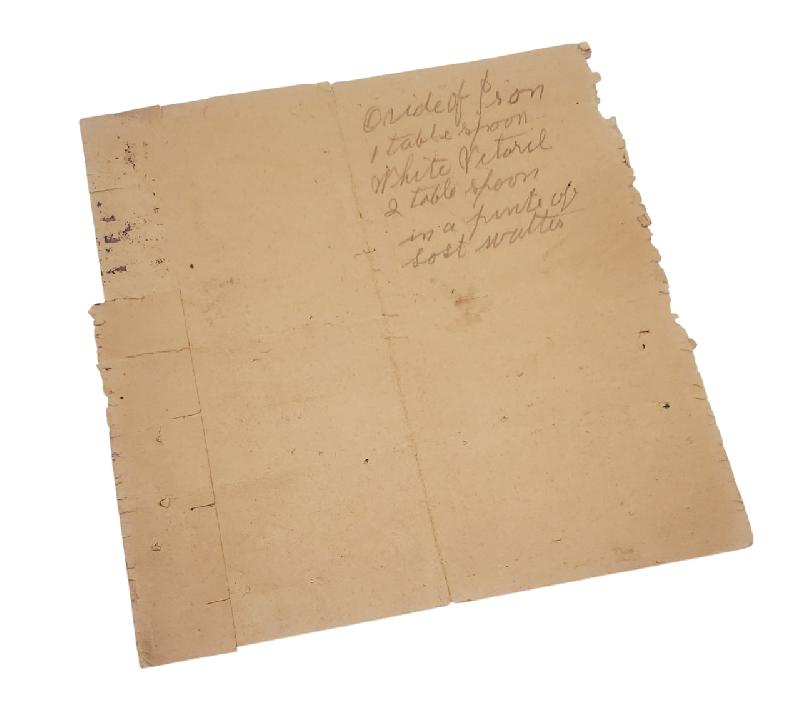 Oxide of Iron
1 table spoon
White Vitoril
2 table spoon
in a pinte of
sost watter